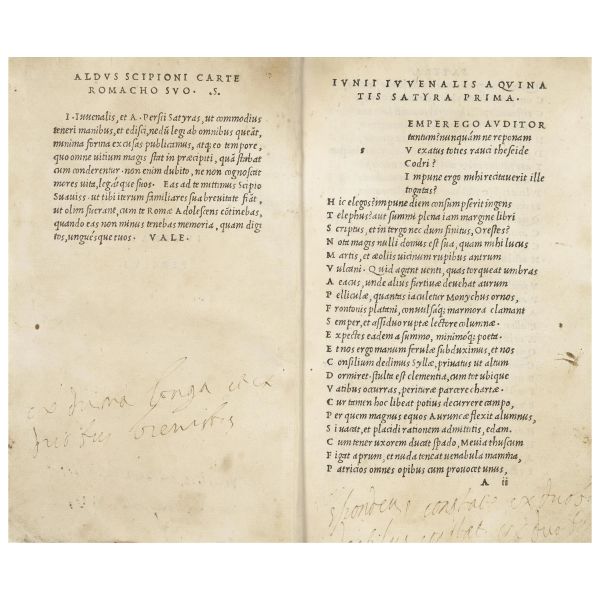 ALDVS SCIPIONI CARTE
ROMACHO SVO. .S.
I. Iuuenalis, et A. Persii Satyras, ut commodius
teneri manibus, et edisci, nedũ legi ab omnibus queãt,
minima forma excusas publicamus, atq; eo tempore,
quo omne uitium magis stat in præcipiti, quã stabat
cum conderentur. non enim dubito, ne non cognoscat
mores uita, legãt que suos. Eas ad te mittimus Scipio
Suauiss. ut tibi iterum familiares sua breuitate fiãt,
ut olim fuerant, cum te Romæ Adolescens cõtinebas,
quando eas non minus tenebas memoria, quam digi
tos, ungues que tuos. VALE.
ex prima longa
duobus brevibus
IVNII IVVENALIS AQVINA
TIS SATYRA PRIMA.
s EMPER EGO AVDITOR
tantum? nunquám ne reponam
V exatus toties rauci theseide
Codri?
I mpune ergo mihi recitauerit ille
togatas?
H ic elegos? impune diem consumpserit ingens
T elephus? aut summi plena iam margine libri
S criptus, et in tergo nec dum finitus, Orestes?
N ota magis nulli domus est sua, quam mihi lucus
M artis, et æoliis uicinum rupibus antrum
V ulcani. Quid agant uenti, quas torqueat umbras
A eacus, unde alius furtiuæ deuehat aurum
P elliculæ, quantas iaculetur Monychus ornos,
F rontonis platani, conuulsáq; marmora clamant
S emper, et assiduo ruptæ lectore columnæ.
E xpectes eadem a summo, minimoq; poeta.
E t nos ergo manum ferulæ subduximus, et nos
C onsilium dedimus Syllæ, priuatus ut altum
D ormiret. stulta est clementia, cum tot ubique
V atibus occurras, perituræ parcere chartæ.
C ur tamen hoc libeat potius decurrere campo,
P er quem magnus equos Auruncæ flexit alumnus,
S i uacat, et placidi rationem admittitis, edam.
C um tener uxorem ducat spado, Meuia thuscum
F igat aprum, et nuda teneat uenabula mamma,
P atricios omnes opibus cum prouocet unus,
A ii
spondeus constat ex duobus